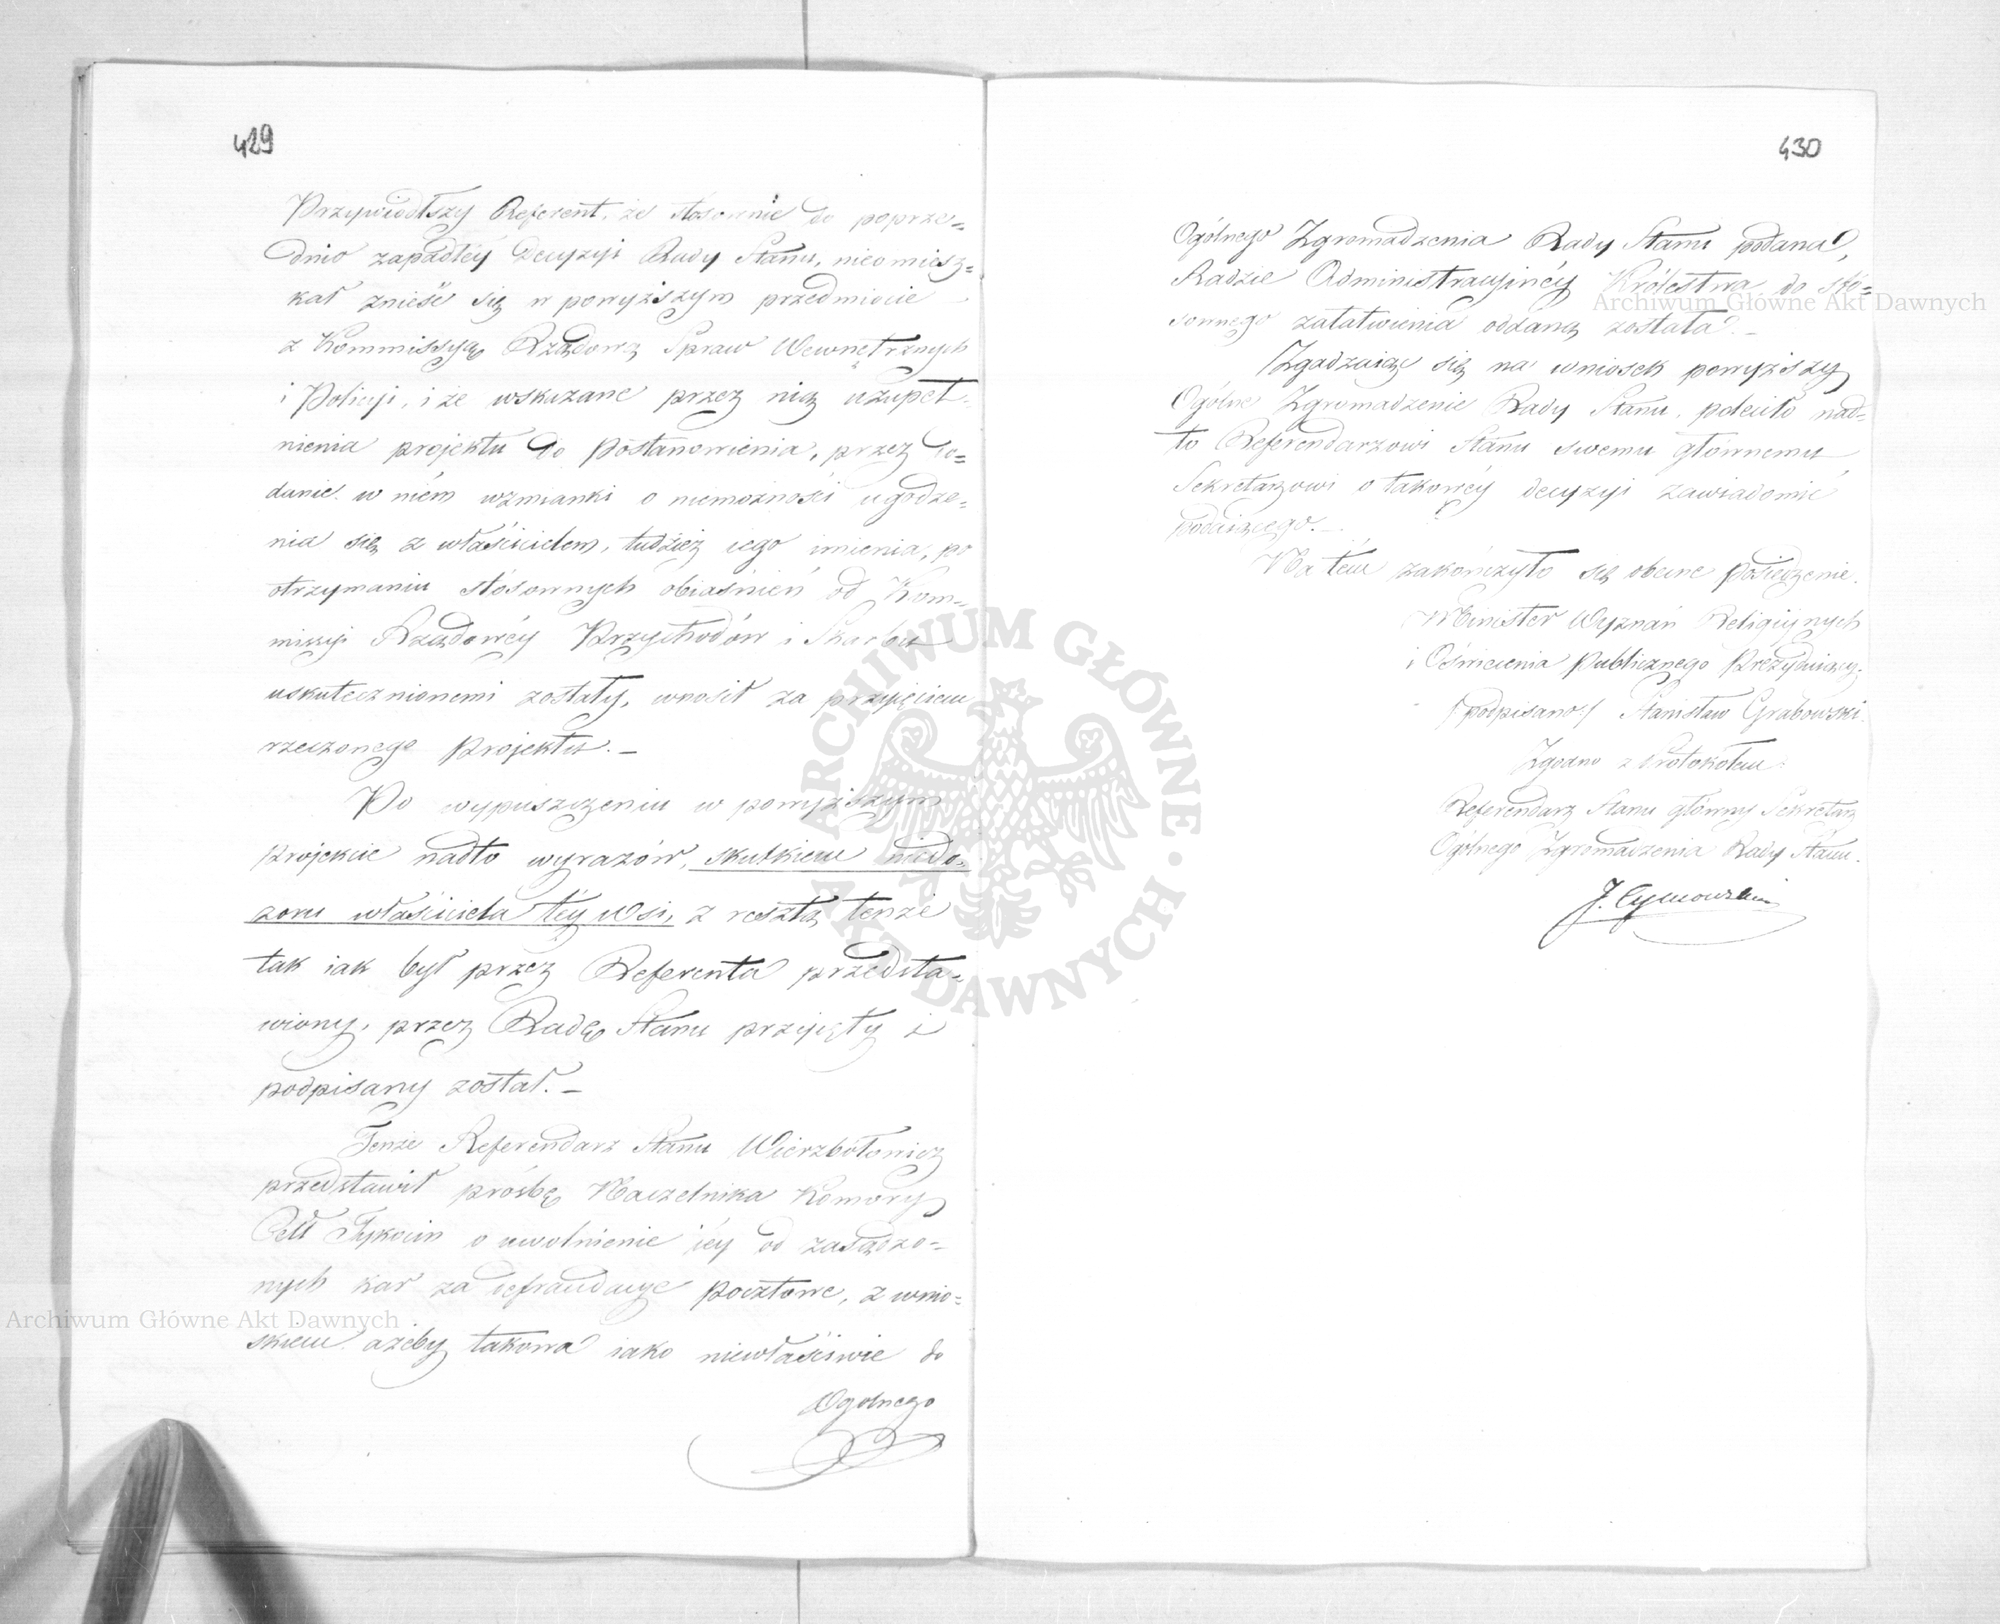 429
Przywiodłszy Referent, że stósownie do poprze=
dnio zapadłéy Decyzyi Rady Stanu, nieomiesz=
kał znieść się w powyższym przedmiocie
z Kommissyą Rządową Spraw Wewnętrznych
i Policyi, i że wskazane przez nią uzupeł=
nienia projektu do Postanowienia, przez do=
danie w niém wzmianki o niemożności ugodze=
nia się z właścicielem, tudzież iego imienia, po
otrzymaniu stósownych obiaśnień od Kom=
missyi Rządowéy Przychodów i Skarbu
uskutecznionemi zostały, wnosił za przyięciem
rzeczonego Projektu.—
Po wypuszczeniu w powyższym
projekcie nadto wyrazów, skutkiem niedo=
zoru właściciela téy wsi, z resztą tenże
tak iak był przez Referenta przedsta=
wiony, przez Radę Stanu przyięty i
podpisany został.—
Tenże Referendarz Stanu Wierzbołowicz
przedstawił prośbę Naczelnika Komory
Cełł Tykocin o uwolnienie iéy od zasądzo=
nych kar za defraudacye pocztowe, z wnio=
skiem ażeby takowa iako niewłaściwie do
Ogólnego
430
Ogólnego Zgromadzenia Rady Stanu podana,
Radzie Administracyinéy Królestwa do stó=
sownego załatwienia oddaną została.—
Zgadzaiąc się na wniosek powyższy
Ogólne Zgromadzenie Rady Stanu, poleciło nad=
to Referendarzowi Stanu swemu głównemu
Sekretarzowi o takowéy decyzyi zawiadomić
podaiącego.—
Na tém zakończyło się obecne posiedzenie.
Minister Wyznań Religiynych
i Oświecenia Publicznego Prezyduiący.
/podpisano:/ Stanisław Grabowski.
Zgodno z Protokołem:
Referendarz Stanu Główny Sekretarz
Ogólnego Zgromadzenia Rady Stanu.
J. Tymowski
Archiwum Główne Akt Dawnych
Archiwum Główne Akt Dawnych
ARCHIWUM GŁÓWNE · AKT DAWNYCH ·